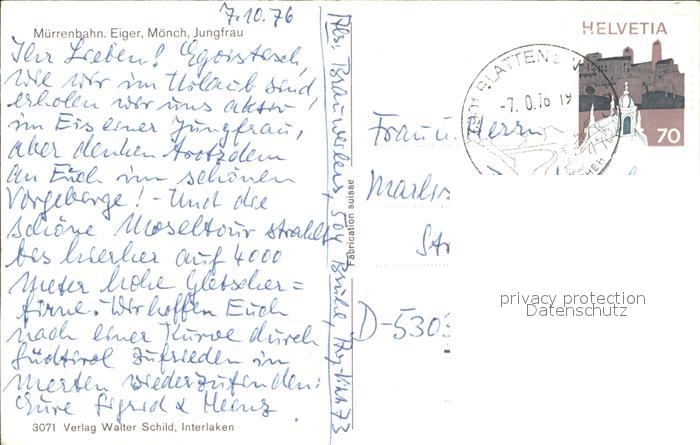 7.10.76
Mürrenbahn. Eiger, Mönch, Jungfrau
Ihr Lieben! Egoistisch,
wie wir im Urlaub sind,
erholen wir uns aktiv
im Eis einer Jungfrau,
aber denken trotzdem
an Euch im schönen
Vorgebirge! - Und die
schöne Moseltour strahlt
bis hierher auf 4000
Meter hohe Gletscher=
firne. Wir hoffen Euch
nach einer Kurve durch
Südtirol zufrieden in
Merten wiederzufinden:
Eure Sigrid & Heinz
3071 Verlag Walter Schild, Interlaken
Abs. 504 Brühl, 73
Fabrication suisse
HELVETIA
70
BLATTEN
-7.
Frau u. Herrn
Marlis
Str
D-5303
privacy protection
Datenschutz